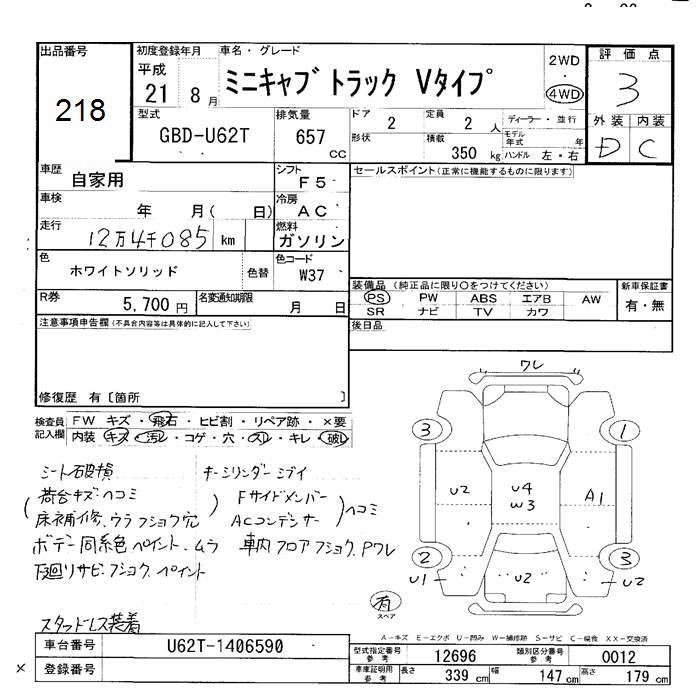 出品番号
218
初度登録年月
平成
21 8月
車名・グレード
ミニキャブ トラック Vタイプ
2WD
・
4WD
評価点
3
外装 内装
D C
型式
GBD-U62T
排気量
657
CC
ドア
2
形状
定員
2 人
積載
350 kg
ディーラー・並行
モデル年式 年
ハンドル 左・右
車歴
自家用
シフト
F5
セールスポイント(正常に機能するものに限ります)
車検
年 月( 日)
冷房
AC
走行
12万4千085 km
燃料
ガソリン
色
ホワイトソリッド
色替
色コード
W37
装備品 (純正品に限り○をつけてください)
PS PW ABS エアB AW
SR ナビ TV カワ
新車保証書
有・無
R券
5,700 円
名変通知期限
月 日
後日品
注意事項申告欄(不具合内容等は具体的に記入して下さい)
修復歴 有〔箇所 〕
検査員記入欄
FW キズ・飛石・ヒビ割・リペア跡・×要
内装 キズ・汚レ・コゲ・穴・スレ・キレ・破レ
シート破損 キーシリンダーシブイ
(荷台キズヘコミ
床補修、ウラフショク穴)
Fサイドメンバー
ACコンデンサー)ヘコミ
ボデー同系色ペイント、ムラ 車内フロアフショク、Pワレ
下廻リサビ、フショク、ペイント
スタッドレス装着
有
スペア
ワレ
3 1
U2 U4 A1
W3
2 3
U1 U2 U2
A−キズ E−エクボ U−凹み W−補修跡 S−サビ C−腐食 XX−交換済
車台番号
U62T-1406590
登録番号
×
型式指定番号
参考
12696
類別区分番号
参考
0012
車庫証明用
参考
長さ
339 cm
幅
147 cm
高さ
179 cm